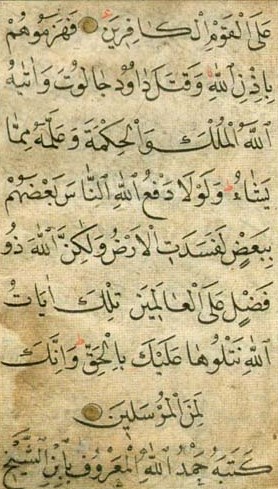 عَلَى الْقَوْمِ الْكَافِرِينَ فَهَزَمُوهُمْ
بِإِذْنِ اللّٰهِ وَقَتَلَ دَاوُدُ جَالُوتَ وَاٰتٰيهُ
اللّٰهُ الْمُلْكَ وَالْحِكْمَةَ وَعَلَّمَهُ مِمَّا
يَشَاءُ وَلَوْلَا دَفْعُ اللّٰهِ النَّاسَ بَعْضَهُمْ
بِبَعْضٍ لَفَسَدَتِ الْاَرْضُ وَلٰكِنَّ اللّٰهَ ذُو
فَضْلٍ عَلَى الْعَالَمِينَ تِلْكَ اٰيَاتُ
اللّٰهِ نَتْلُوهَا عَلَيْكَ بِالْحَقِّ وَاِنَّكَ
لَمِنَ الْمُرْسَلِينَ
كَتَبَهُ حَمْدُ اللّٰهِ الْمَعْرُوفُ بِابْنِ الشَّيْخِ